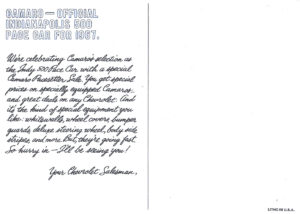 CAMARO — OFFICIAL
INDIANAPOLIS 500
PACE CAR FOR 1967.
We're celebrating Camaro's selection as
the Indy 500 Pace Car with a special
Camaro Pacesetter Sale. You get special
prices on specially equipped Camaros.
and great deals on any Chevrolet. And
it's the kind of special equipment you
like: whitewalls, wheel covers, bumper
guards, deluxe steering wheel, body side
stripes and more. But, they're going fast.
So hurry in — I'll be seeing you!
Your Chevrolet Salesman,
LITHO IN U.S.A.